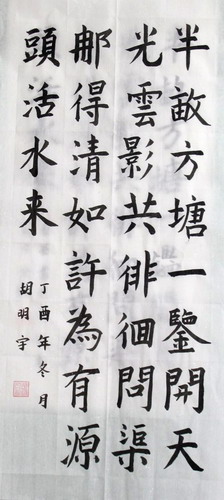 半畝方塘一鑒開天
光雲影共徘徊問渠
那得清如許為有源
頭活水来
丁酉年冬月
胡明宇